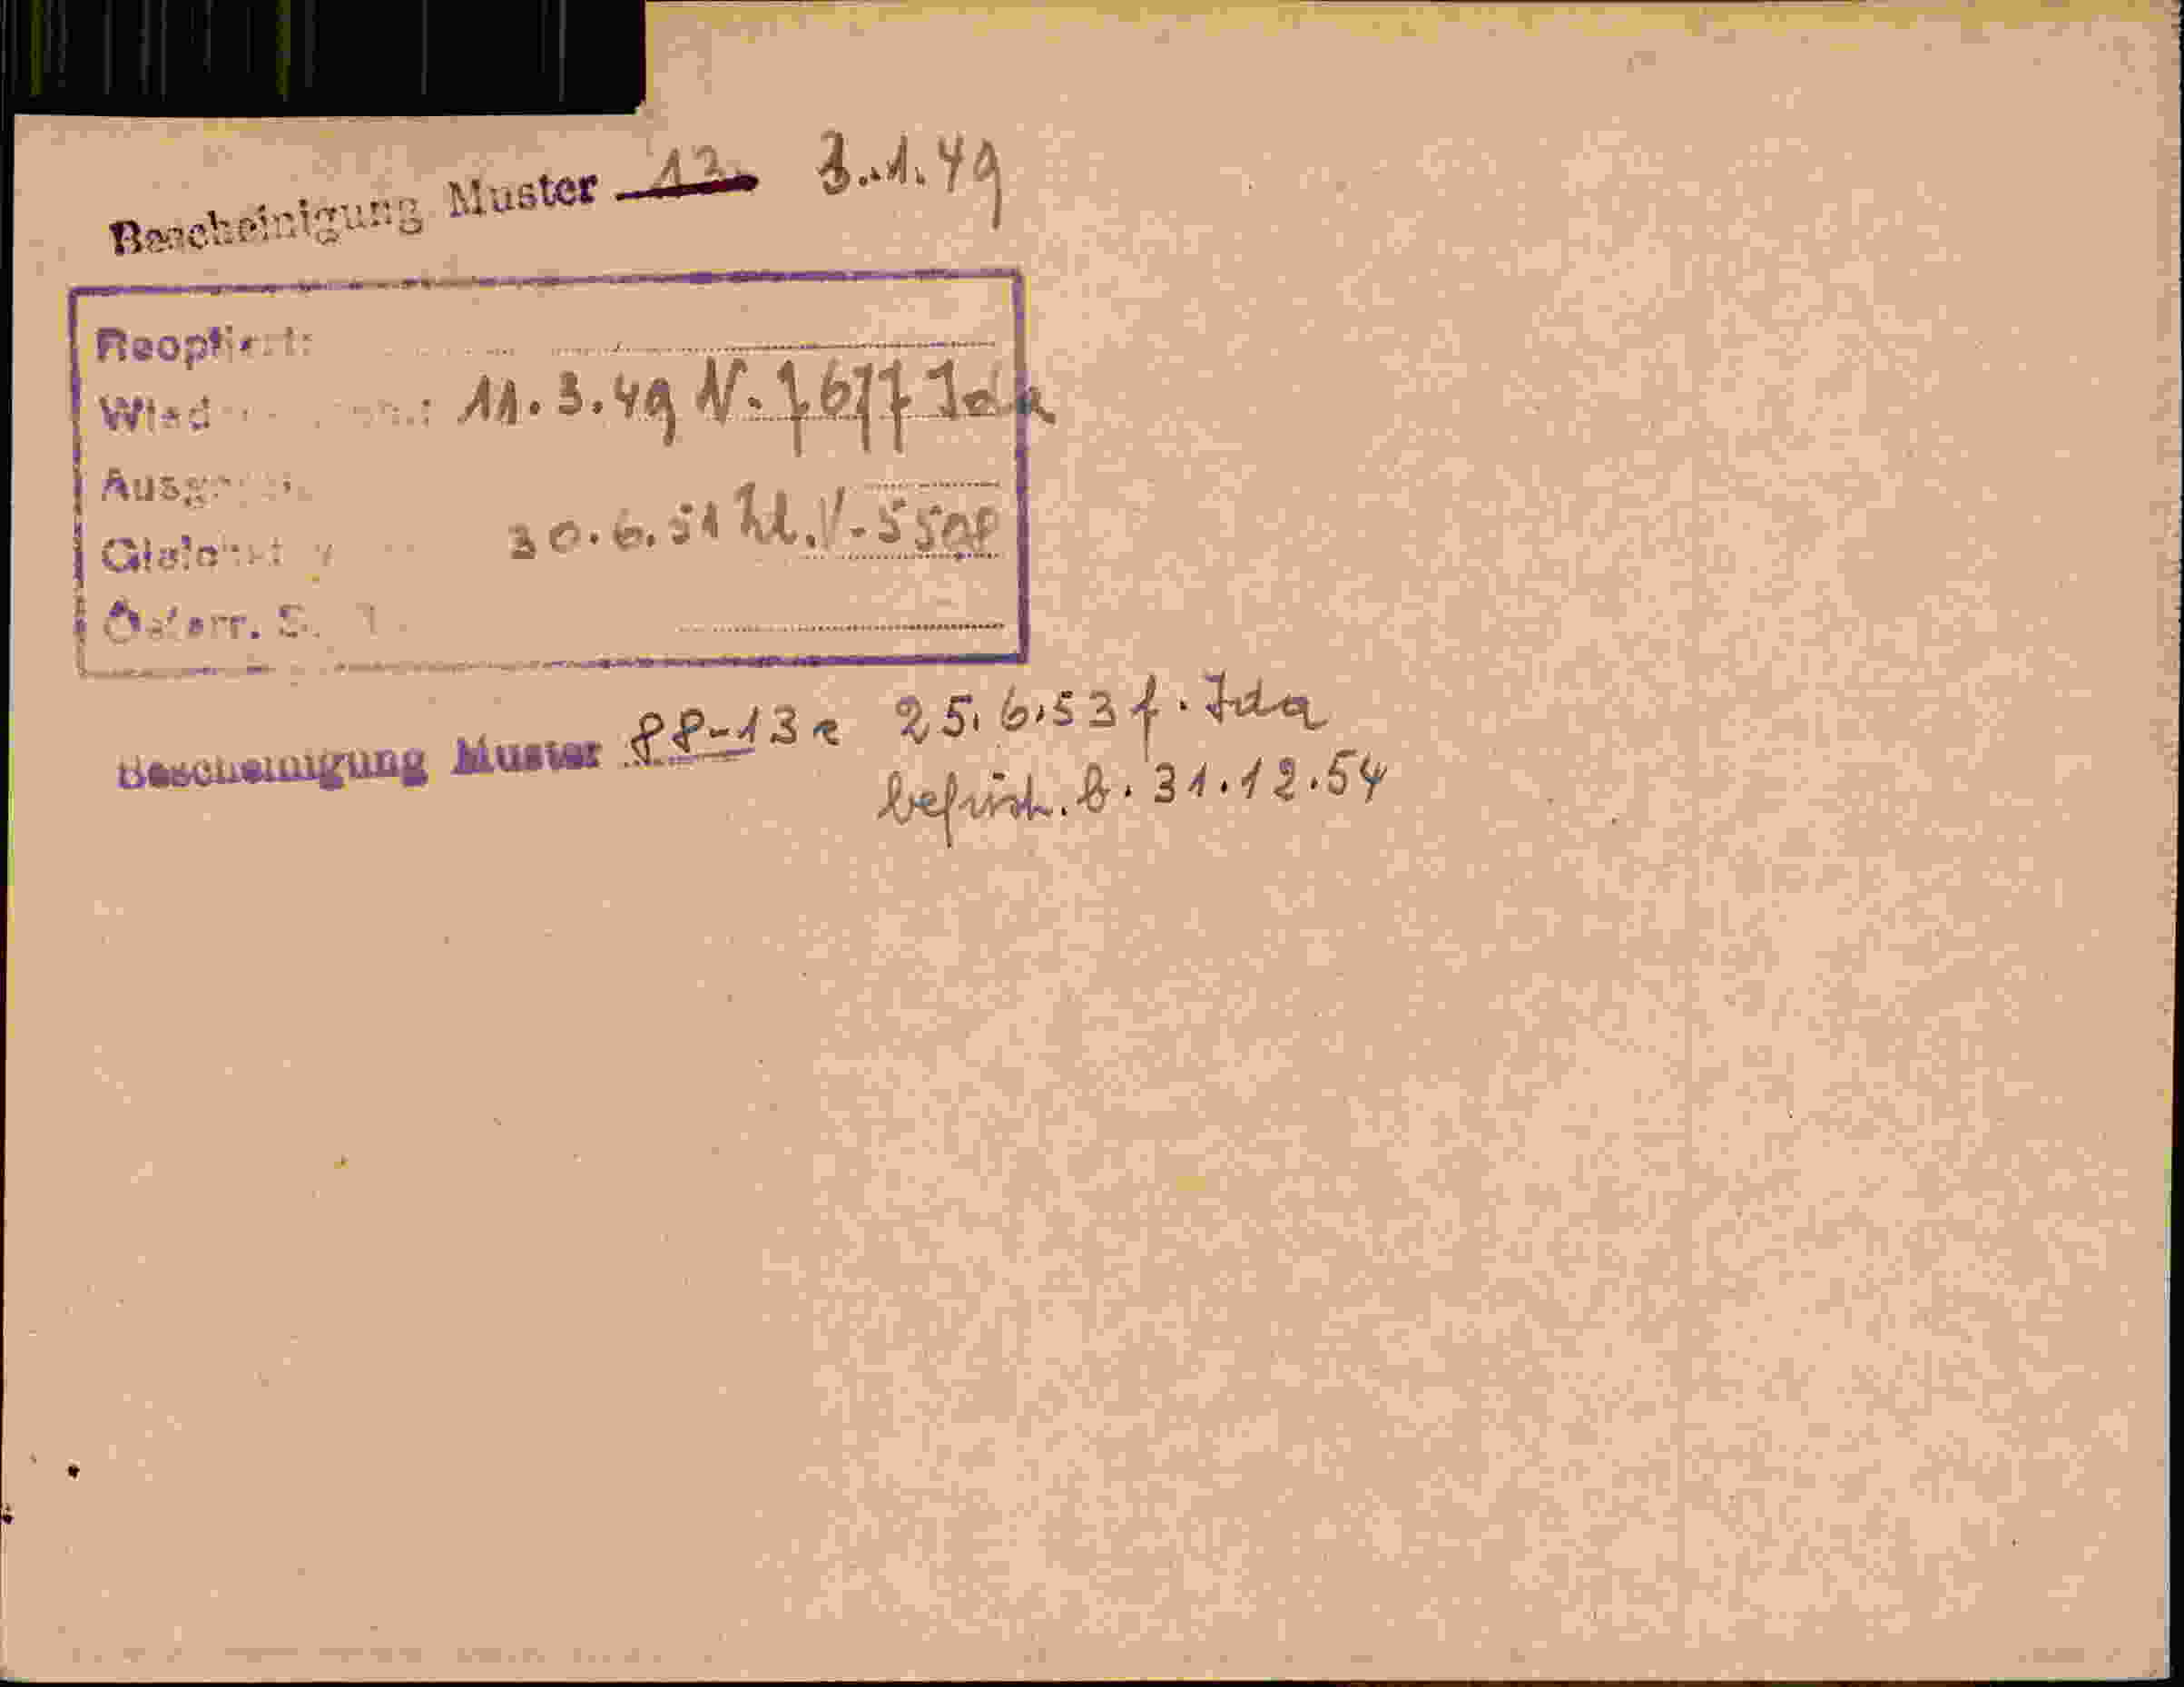 Bescheinigung Muster 13 3.1.49
Reoptiert:
11.3.49 N. 7677 Ida
30.6.51 Zl. V-5508
Österr. S.
Bescheinigung Muster 88-13e 25.6.53 f. Ida
befrist. b. 31.12.54